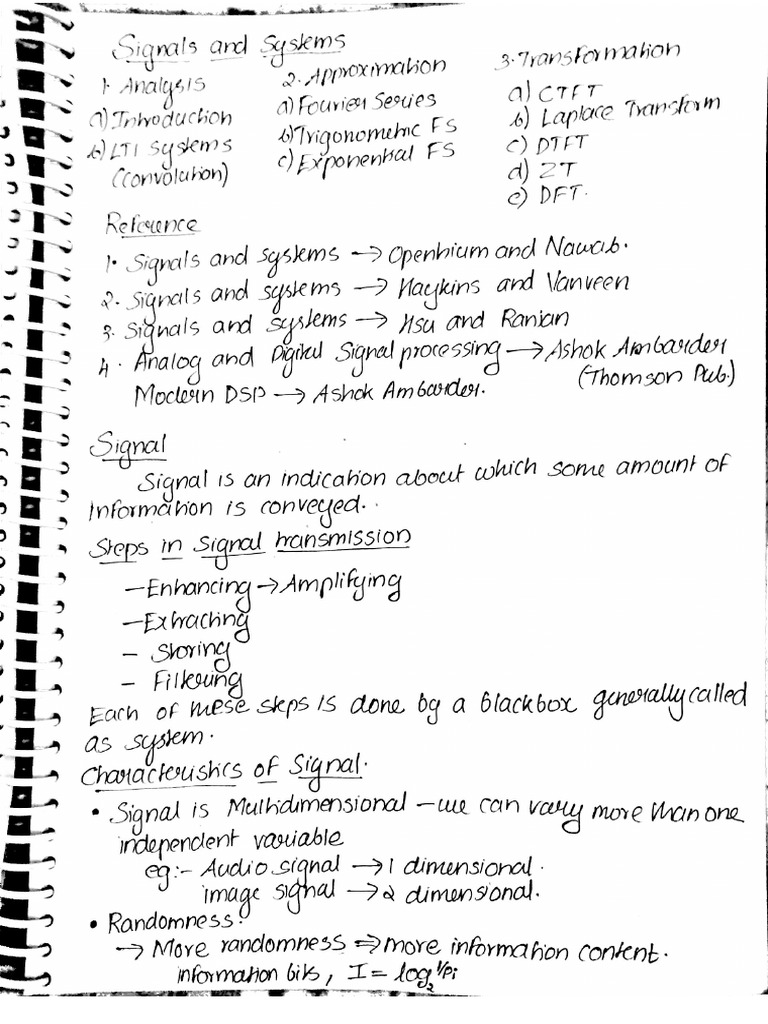 Signals and Systems
1. Analysis
a) Introduction
b) LTI Systems
(Convolution)
2. Approximation
a) Fourier Series
b) Trigonometric FS
c) Exponential FS
3. Transformation
a) CTFT
b) Laplace Transform
c) DTFT
d) ZT
e) DFT.
Reference
1. Signals and systems → Openhium and Nawab.
2. Signals and systems → Haykins and Vanveen
3. Signals and systems → Hsu and Ranjan
4. Analog and Digital Signal processing → Ashok Ambarder
(Thomson Pub.)
Modern DSP → Ashok Ambarder.
Signal
Signal is an indication about which some amount of
information is conveyed.
Steps in signal transmission
– Enhancing → Amplifying
– Extracting
– Storing
– Filtering
Each of these steps is done by a blackbox generally called
as system.
Characteristics of Signal.
• Signal is Multidimensional – we can vary more than one
independent variable
eg:- Audio signal → 1 dimensional.
image signal → 2 dimensional.
• Randomness.
→ More randomness ⇒ more information content.
information bits, I = log₂ 1/Pi